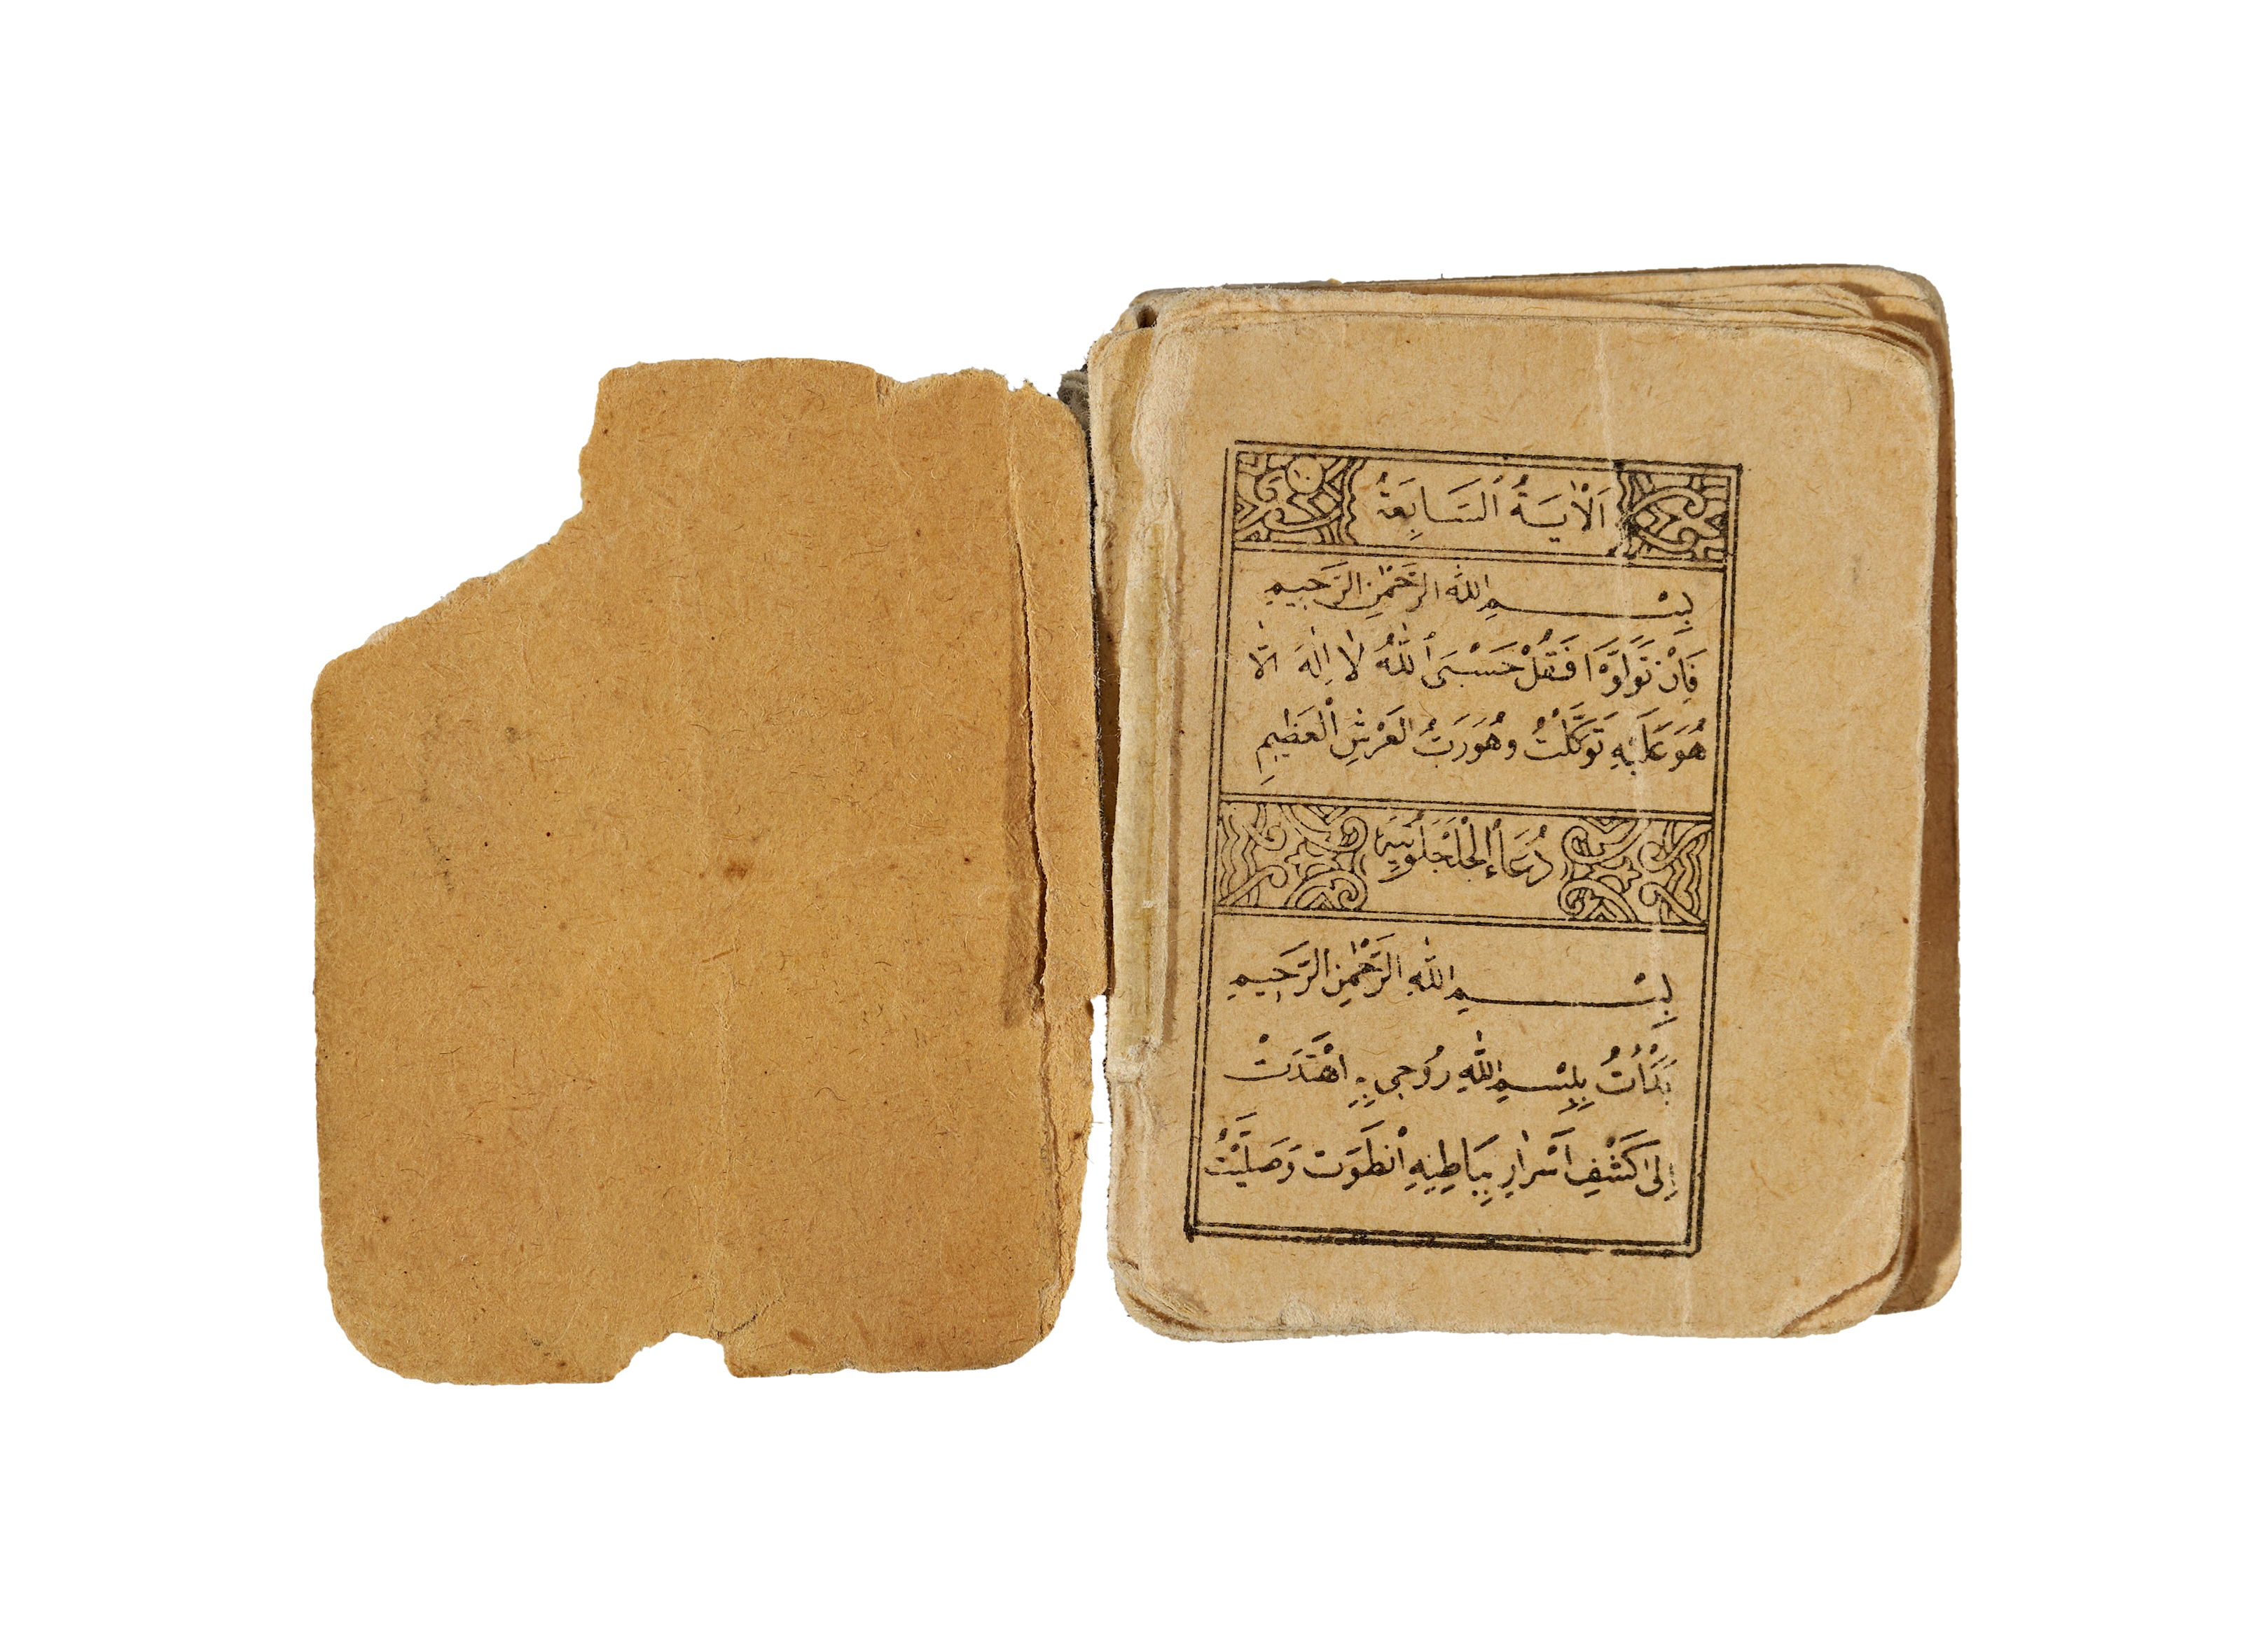 اَلْاٰيَةُ السَّابِعَةُ
بِسْمِ اللهِ الرَّحْمٰنِ الرَّحِيمِ
فَاِنْ تَوَلَّوْا فَقُلْ حَسْبِىَ اللّٰهُ لَا اِلٰهَ اِلَّا
هُوَ عَلَيْهِ تَوَكَّلْتُ وَهُوَ رَبُّ الْعَرْشِ الْعَظِيمِ
دُعَاءُ الْجَلْجَلُوتِيَّة
بِسْمِ اللّٰهِ الرَّحْمٰنِ الرَّحِيمِ
بَدَأْتُ بِبِسْمِ اللّٰهِ رُوحِي بِهِ اهْتَدَتْ
اِلىٰ كَشْفِ اَسْرَارٍ بِبَاطِنِهِ انْطَوَتْ وَصَلَّيْتُ